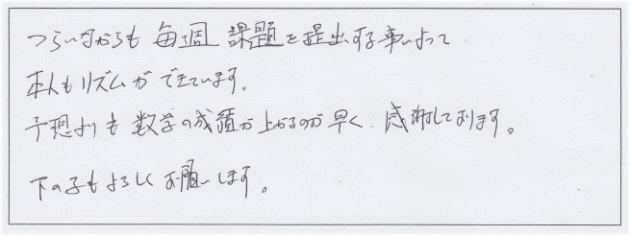 つらいながらも 毎週 課題を提出する事によって
本人もリズムができています。
予想よりも 数学の成績が上がるのが早く、感謝しております。
下の子もよろしくお願いします。